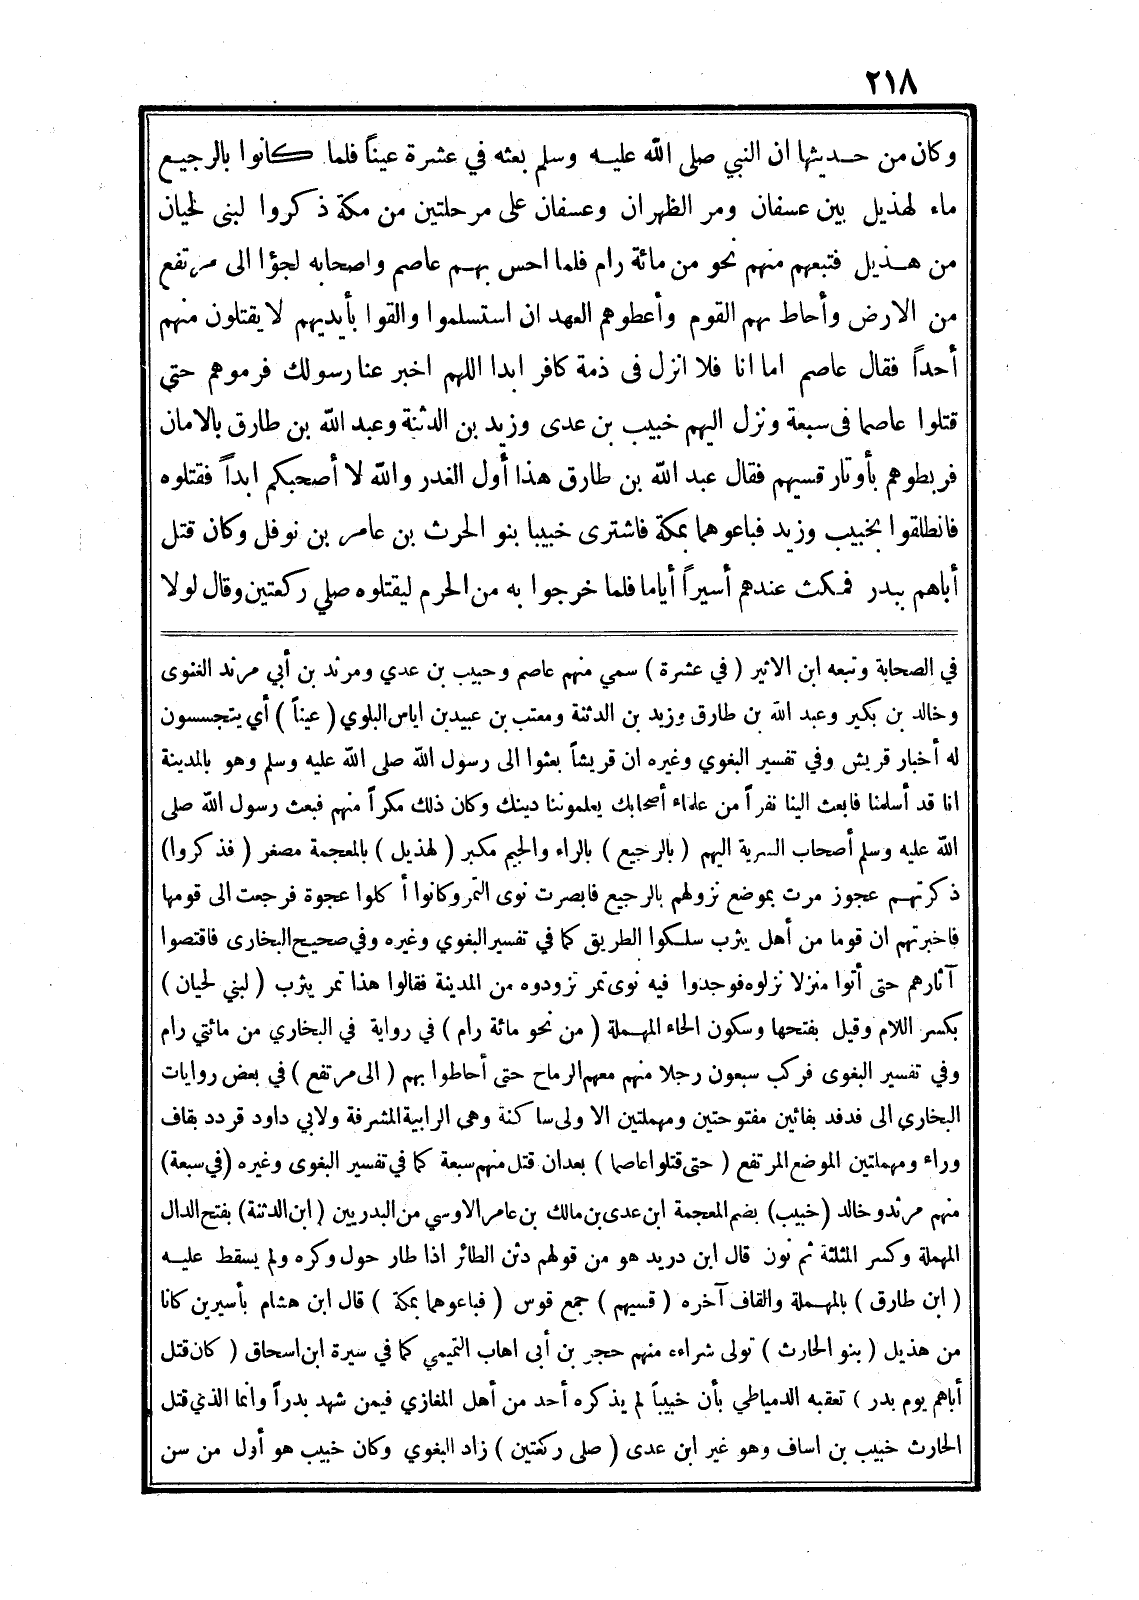 ٢١٨
وكان من حديثها ان النبي صلى الله عليه وسلم بعثه في عشرة عيناً فلما كانوا بالرجيع
ماء لهذيل بين عسفان ومر الظهران وعسفان على مرحلتين من مكة ذكروا لبنى لحيان
من هذيل فتبعهم منهم نحو من مائة رام فلما احس بهم عاصم واصحابه لجؤا الى مرتفع
من الارض وأحاط بهم القوم وأعطوهم العهد ان استسلموا والقوا بأيديهم لا يقتلون منهم
أحداً فقال عاصم اما انا فلا انزل فى ذمة كافر ابدا اللهم اخبر عنا رسولك فرموهم حتى
قتلوا عاصما فى سبعة ونزل اليهم خبيب بن عدى وزيد بن الدثنة وعبد الله بن طارق بالامان
فربطوهم بأوتار قسيهم فقال عبد الله بن طارق هذا أول الغدر والله لا أصحبكم ابداً فقتلوه
فانطلقوا بخبيب وزيد فباعوهما بمكة فاشترى خبيبا بنو الحرث بن عامر بن نوفل وكان قتل
أباهم ببدر فمكث عندهم أسيراً أياما فلما خرجوا به من الحرم ليقتلوه صلي ركعتين وقال لولا
في الصحابة وتبعه ابن الاثير ( في عشرة ) سمي منهم عاصم وحبيب بن عدي ومرثد بن أبي مرثد الغنوى
وخالد بن بكير وعبد الله بن طارق وزيد بن الدثنة ومعتب بن عبيد بن اياس البلوي ( عيناً ) أي يتجسسون
له أخبار قريش وفي تفسير البغوي وغيره ان قريشاً بعثوا الى رسول الله صلى الله عليه وسلم وهو بالمدينة
انا قد أسلمنا فابعث الينا نفراً من علماء أصحابك يعلموننا دينك وكان ذلك مكراً منهم فبعث رسول الله صلى
الله عليه وسلم أصحاب السرية اليهم ( بالرجيع ) بالراء والجيم مكبر ( لهذيل ) بالمعجمة مصغر ( فذكروا)
ذكرتهم عجوز مرت بموضع نزولهم بالرجيع فابصرت نوى التمر وكانوا أكلوا عجوة فرجعت الى قومها
فاخبرتهم ان قوما من أهل يثرب سلكوا الطريق كما في تفسير البغوي وغيره وفي صحيح البخارى فاقتصوا
آثارهم حتى أتوا منزلا نزلوه فوجدوا فيه نوى تمر تزودوه من المدينة فقالوا هذا تمر يثرب ( لبني لحيان )
بكسر اللام وقيل بفتحها وسكون الحاء المهملة ( من نحو مائة رام ) في رواية في البخاري من مائتي رام
وفي تفسير البغوى فركب سبعون رجلا منهم معهم الرماح حتى أحاطوا بهم ( الى مرتفع ) في بعض روايات
البخاري الى فدفد بفائين مفتوحتين ومهملتين الاولى ساكنة وهى الرابية المشرفة ولابي داود قردد بقاف
وراء ومهملتين الموضع المرتفع ( حتى قتلوا عاصما ) بعد ان قتل منهم سبعة كما في تفسير البغوى وغيره (في سبعة)
منهم مرثد وخالد (خبيب) بضم المعجمة ابن عدى بن مالك بن عامر الاوسي من البدريين ( ابن الدثنة) بفتح الدال
المهملة وكسر المثلثة ثم نون قال ابن دريد هو من قولهم دثن الطائر اذا طار حول وكره ولم يسقط عليه
( ابن طارق ) بالمهملة والقاف آخره ( قسيهم ) جمع قوس ( فباعوهما بمكة ) قال ابن هشام بأسيرين كانا
من هذيل ( بنو الحارث ) تولى شراءه منهم حجر بن أبى اهاب التميمي كما في سيرة ابن اسحاق ( كان قتل
أباهم يوم بدر ) تعقبه الدمياطي بأن خبيباً لم يذكره أحد من أهل المغازي فيمن شهد بدراً وانما الذي قتل
الحارث خبيب بن اساف وهو غير ابن عدى ( صلى ركعتين ) زاد البغوي وكان خبيب هو أول من سن